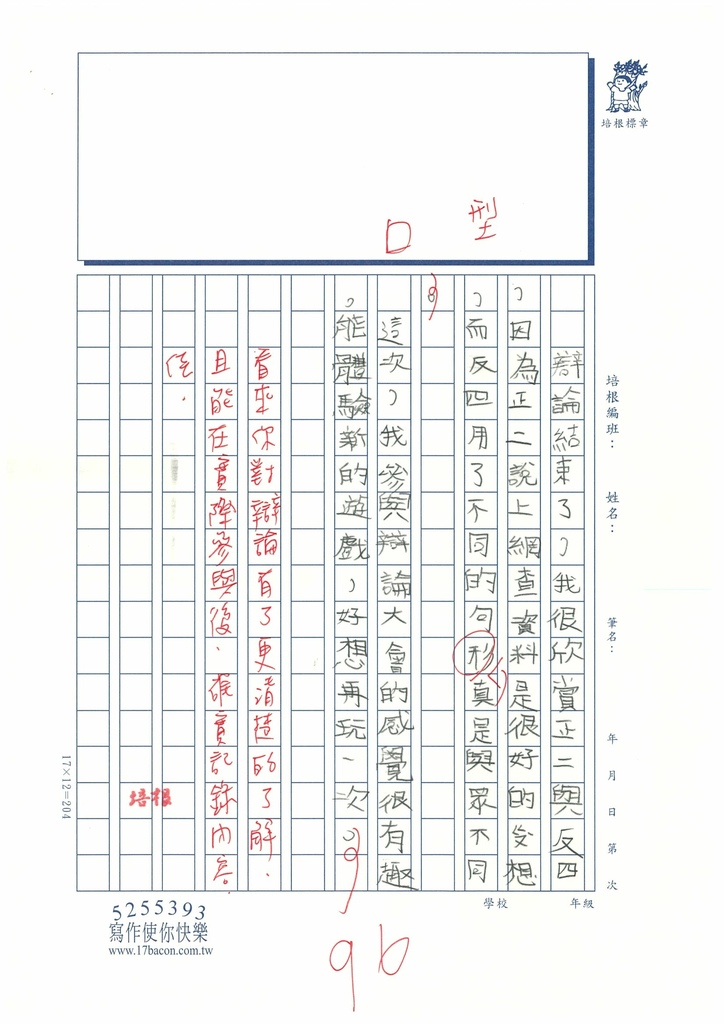 培根標章
口 型
辯論結束了，我很欣賞正二與反四
，因為正二說上網查資料是很好的發想
，而反四用了不同的句形，真是與眾不同
。
這次，我參與辯論大會的感覺很有趣
，能體驗新的遊戲，好想再玩一次。
看來你對辯論有了更清楚的了解，
且能在實際參與後，確實記錄內容
佳。
培根
培根編班： 姓名： 筆名： 年 月 日 第 次
17×12=204
學校 年級
5255393
寫作使你快樂
www.17bacon.com.tw
96